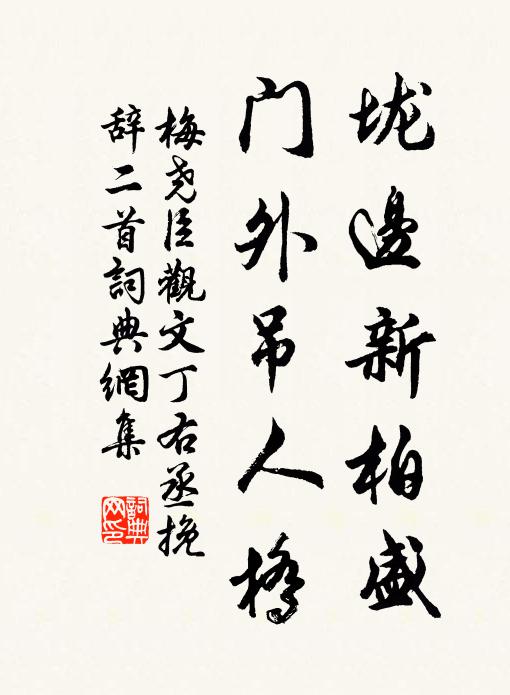 垅邊新柏盛
门外吊人橋
梅尧臣觀文丁右丞挽
辞二首詞典網集
詞典
网印